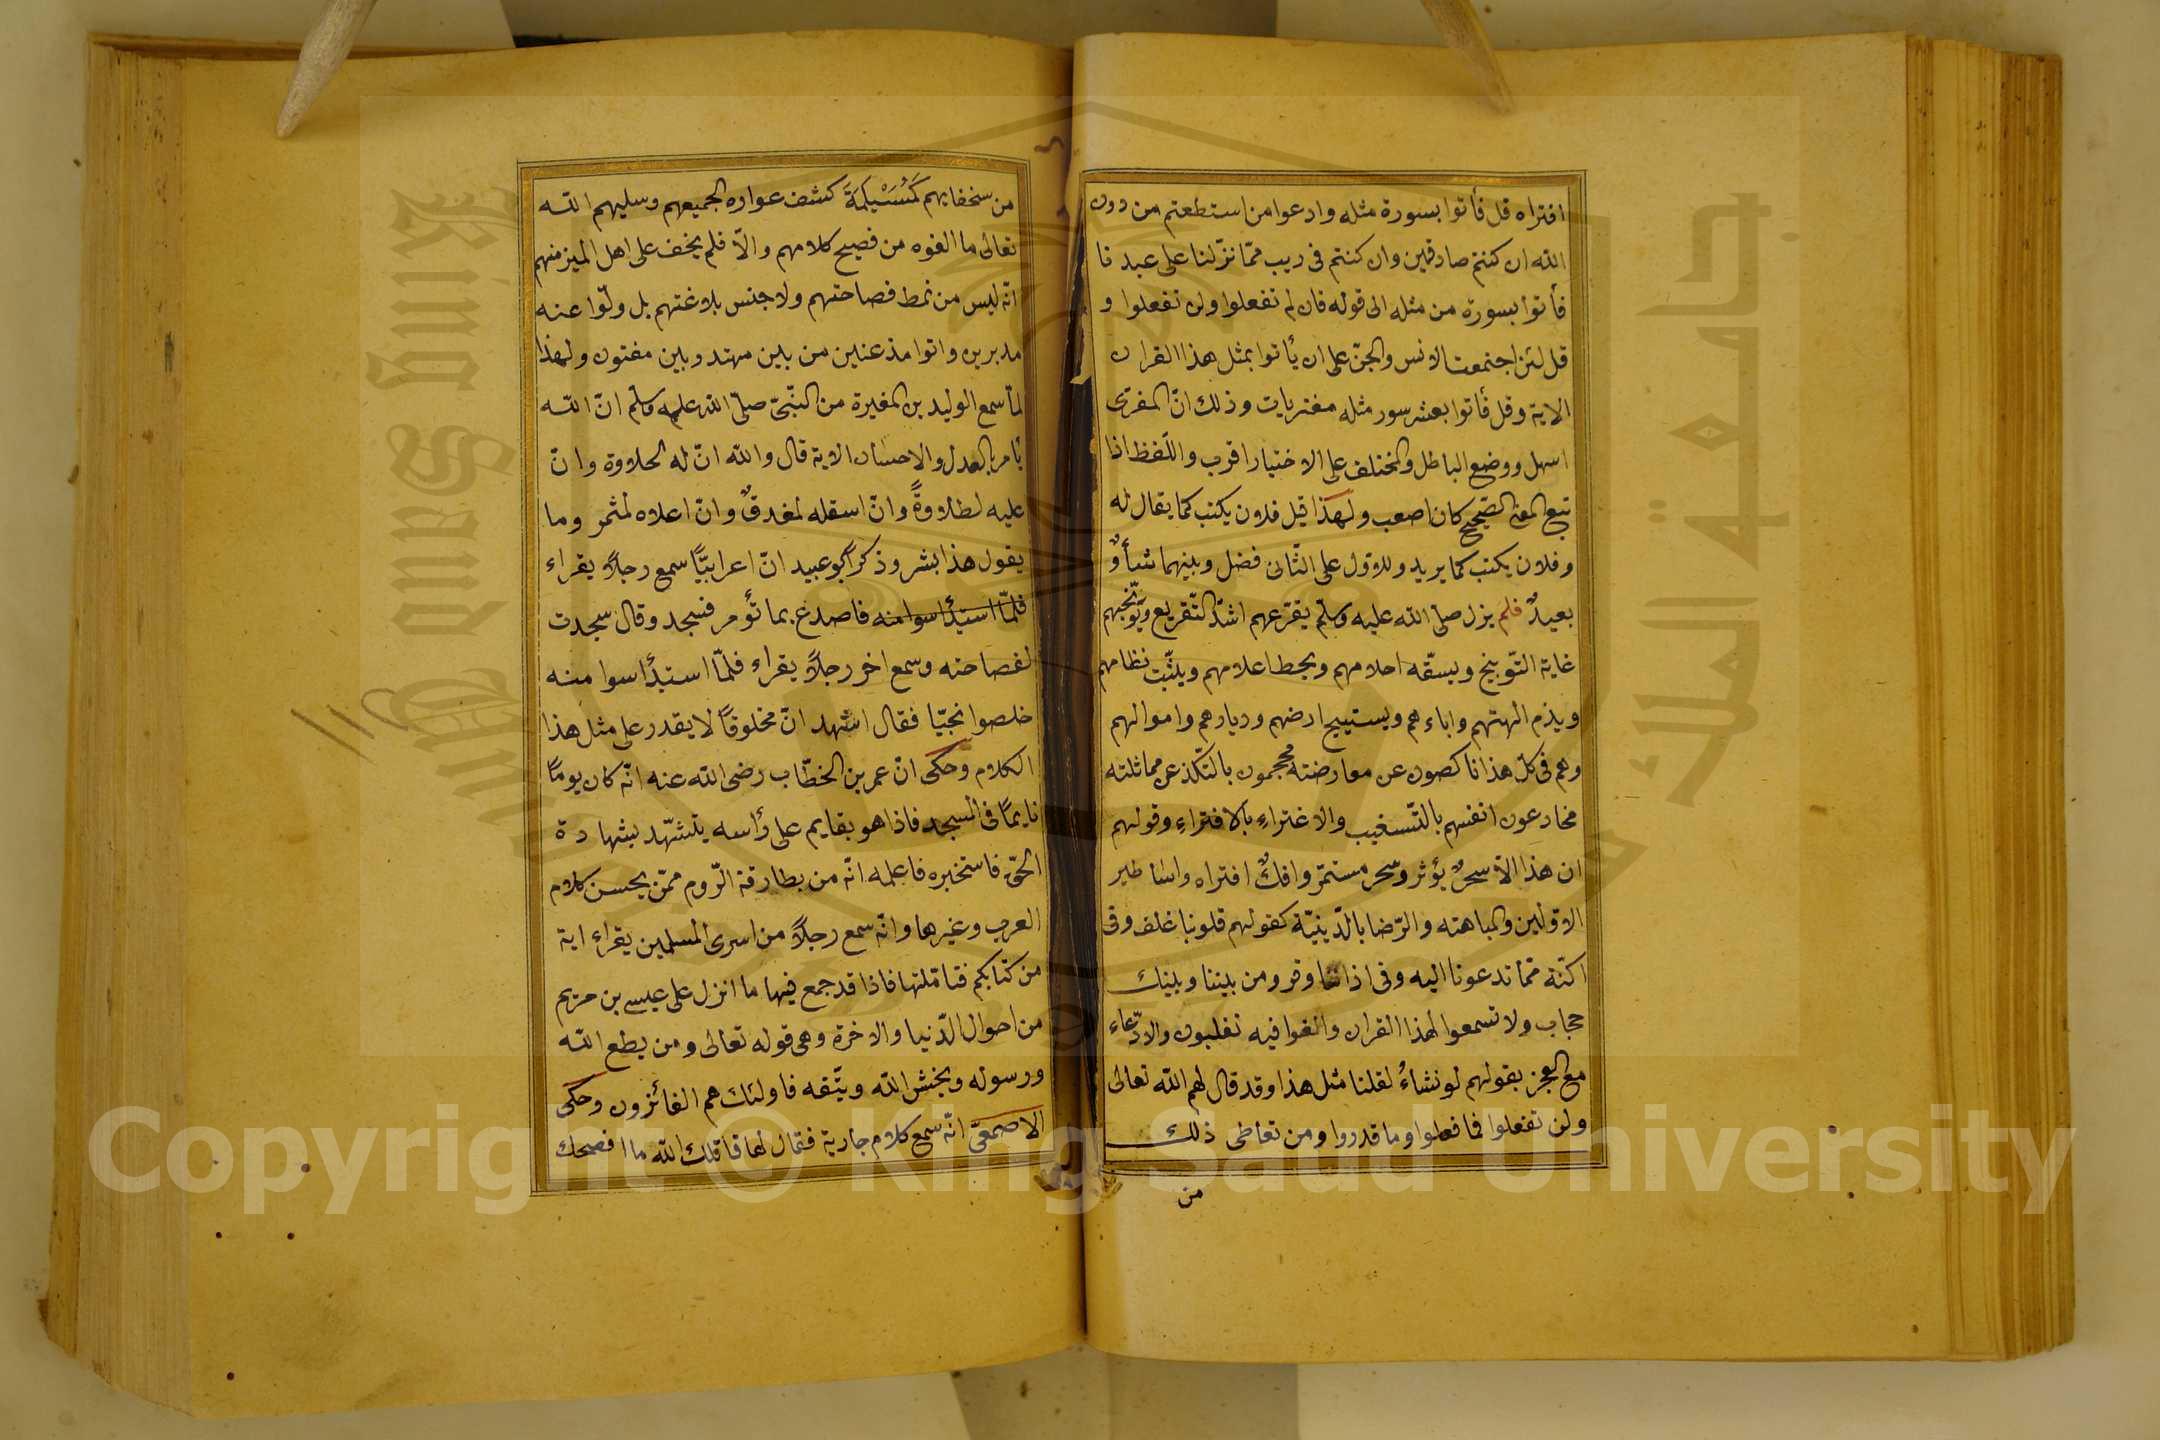 افتراه قل فأتوا بسورة مثله وادعوا من استطعتم من دون
الله ان كنتم صادقين وان كنتم فى ريب ممّا نزّلنا على عبدنا
فأتوا بسورة من مثله الى قوله فان لم تفعلوا ولن تفعلوا و
قل لئن اجتمعت الانس والجنّ على ان يأتوا بمثل هذا القران
الاية وقل فأتوا بعشر سور مثله مفتريات وذلك انّ المفترى
اسهل ووضع الباطل والمختلف على الاختيار اقرب واللّفظ اذا
تبع المعنى الصّحيح كان اصعب ولهذا قيل فلان يكتب كما يقال له
وفلان يكتب كما يريد وللاوّل على الثّانى فضل وبينهما شأوٌ
بعيدٌ فلم يزل صلّى الله عليه وسلّم يقرّعهم اشدّ التّقريع ويوبّخهم
غاية التّوبيخ ويسفّه احلامهم ويحط اعلامهم ويشتّت نظامهم
ويذم الهتهم واباءهم ويستبيح ارضهم وديارهم واموالهم
وهم فى كلّ هذا ناكصون عن معارضته محجمون عن مماثلته
مخادعون انفسهم بالتّشغيب والاغتراءِ بالافتراءِ وقولهم
ان هذا الّا سحرٌ يؤثر وسحر مستمرّ وافكٌ افتراه واساطير
الاوّلين والمباهته والرّضا بالدّنيّة كقولهم قلوبنا غلف وفى
اكنّة ممّا تدعونا اليه وفى اذاننا وقر ومن بيننا وبينك
حجاب ولا تسمعوا لهذا القران والغوا فيه تغلبون والادّعاء
مع العجز بقولهم لو نشاءُ لقلنا مثل هذا وقد قال لهم الله تعالى
ولن تفعلوا فما فعلوا وما قدروا ومن تعاطى ذلك
من
من سخفايهم كَمُسَيْلِمَةَ كشف عواره لجميعهم وسلبهم الله
تعالى ما الفوه من فصيح كلامهم والّا فلم يخف على اهل الميز منهم
انّه ليس من نمط فصاحتهم ولا جنس بلاغتهم بل ولّوا عنه
مدبرين واتوا مذعنين من بين مهتد وبين مفتون ولهذا
لمّا سمع الوليد بن المغيرة من النّبىّ صلّى الله عليه وسلّم انّ الله
يأمر بالعدل والاحسان الاية قال والله انّ له لحلاوة وانّ
عليه لطلاوةً وانّ اسفله لمغدقٌ وانّ اعلاه لمثمر وما
يقول هذا بشر وذكر ابو عبيد انّ اعرابيًّا سمع رجلاً يقراء
فلمّا استيأسوا منه فاصدع بما تؤمر فسجد وقال سجدت
لفصاحته وسمع اخر رجلاً يقراء فلمّا استيأسوا منه
خلصوا نجيّا فقال اشهد انّ مخلوقاً لا يقدر على مثل هذا
الكلام وحكى انّ عمر بن الخطّاب رضى الله عنه انّه كان يومًا
نايمًا فى المسجد فاذا هو بقايم على رأسه يتشهّد بشهادة
الحقّ فاستخبره فاعلمه انّه من بطارقة الرّوم ممّن يحسن كلام
العرب وغيرها وانّه سمع رجلاً من اسرى المسلمين يقراء اية
من كتابكم فتأمّلتها فاذا قد جمع فيها ما انزل على عيسى بن مريم
من احوال الدّنيا والاخرة وهى قوله تعالى ومن يطع الله
ورسوله ويخش الله ويتّقه فاولئك هم الفائزون وحكى
الاصمعىّ انّه سمع كلام جارية فقال لها قاتلك الله ما افصحك
جامعة الملك سعود
King Saud University
Copyright © King Saud University